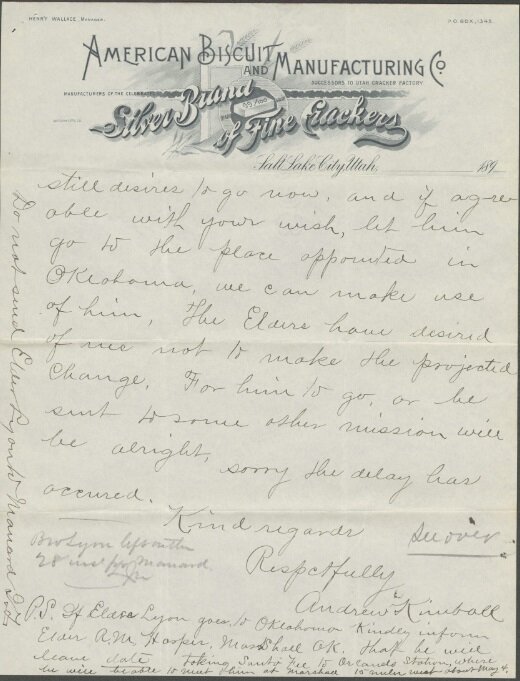 HENRY WALLACE MANAGER.
P.O. BOX, 1343.
AMERICAN BISCUIT
AND MANUFACTURING CO
SUCCESSORS TO UTAH CRACKER FACTORY
MANUFACTURERS OF THE CELEBRATED
Silver Brand
of Fine Crackers
Salt Lake City, Utah, 189
still desires to go now, and if agree
able with your wish, let him
go to the place appointed in
Oklahoma, we can make use
of him, The Elders have desired
of me not to make the projected
Change. For him to go, or be
sent to some other mission will
be alright, sorry the delay has
occured.
Kind regards
See over
Respctfully
Andrew Kimball
Bro Lyon left on the
28 inst for Manard
P.S. If Elder Lyon goes to Oklahoma Kindly inform
Elder A.M. Harper, Marshall OK. That he will
leave date taking Santa Fee to Orlando Station, where
he will be able to meet him at Marshal 15 miles west about May 4.
Do not send Elder Lyon to Manard I.T.